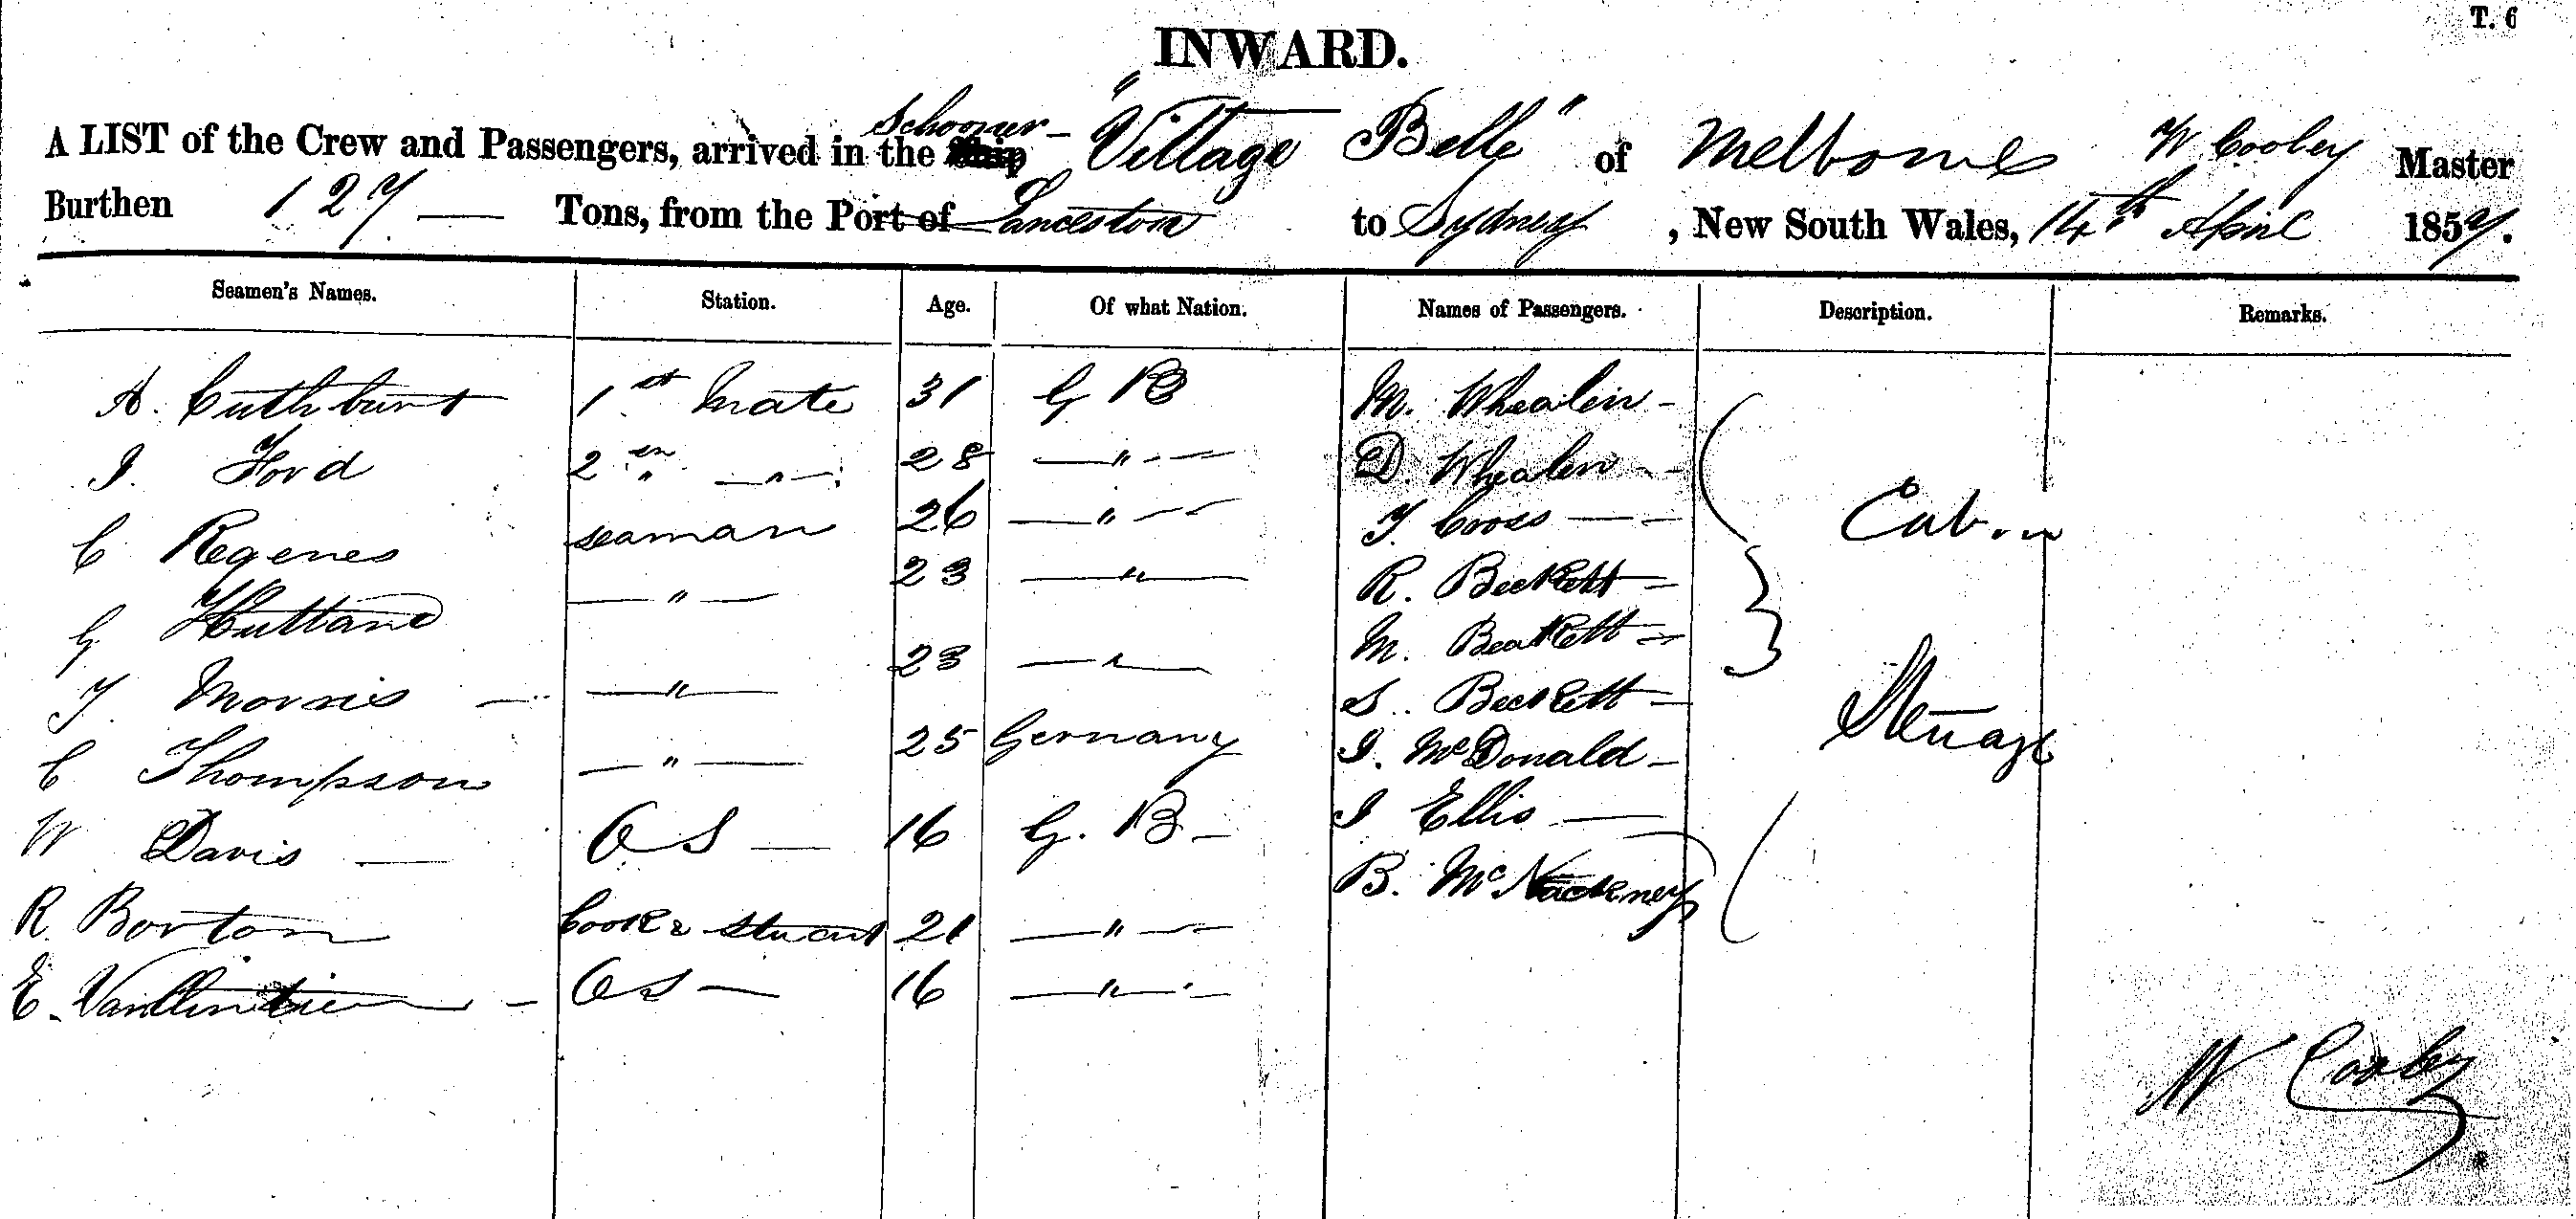 T. 6
INWARD.
A LIST of the Crew and Passengers, arrived in the Schooner "Village Belle" of Melborne W Cooley Master
Burthen 127 Tons, from the Port of Lanceston to Sydney, New South Wales, 14th April 1859.
Seamen's Names. Station. Age. Of what Nation. Names of Passengers. Description. Remarks.
A. Cuthburt 1st Mate 31 G B M. Whealin
J. Ford 2en " " 28 " D. Whealin
C Regenes seaman 26 " T. Cross Cabin
G " 23 " R. Beckett
T. Morris " 23 " M. Beckett
C Thompson " 25 Germany S. Beckett Steerage
J. McDonald
W Davis O S 16 G. B J Ellis
R. Borton Cook & 21 " B. McNackney
E. O S 16 "
W Cooley